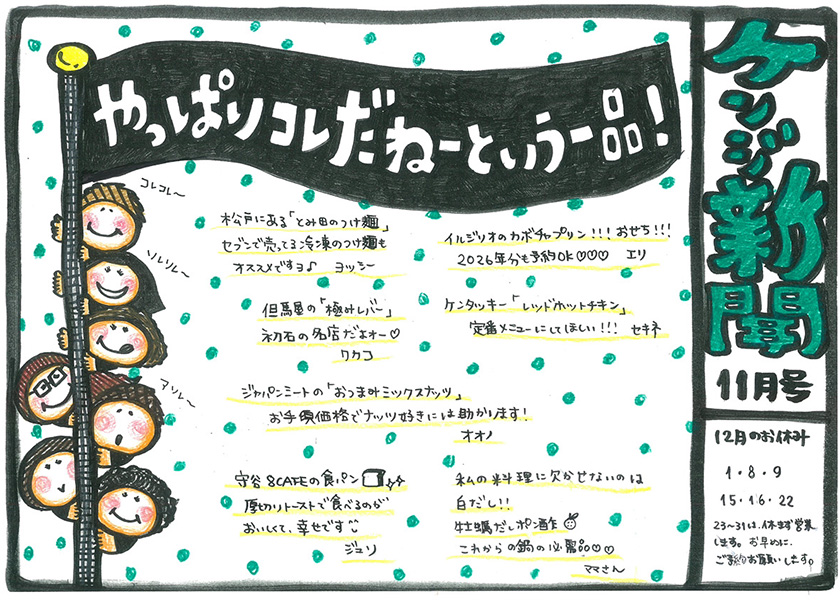 ケンジ新聞
11月号
やっぱりコレだねーという一品！
コレコレ〜
ソレソレ〜
アソレ〜
松戸にある「とみ田のつけ麺」
セブンで売ってる冷凍のつけ麺も
オススメですヨ♪ ヨッシー
イルジリオのカボチャプリン!!! おせち!!!
2026年分も予約OK♡♡♡ エリ
但馬屋の「極みレバー」
初石の名店だよォー♡
ワカコ
ケンタッキー「レッドホットチキン」
定番メニューにしてほしい!!! セキネ
ジャパンミートの「おつまみミックスナッツ」
お手頃価格でナッツ好きには助かります!
オオノ
守谷 8CAFEの食パン
厚切りトーストで食べるのが
おいしくて、幸せです
ジュリ
私の料理に欠かせないのは
白だし!!
牡蠣だしポン酢
これからの鍋の必需品♡♡
ママさん
12月のお休み
1・8・9
15・16・22
23〜31は、休まず営業
します。お早めに、
ご予約お願いします。